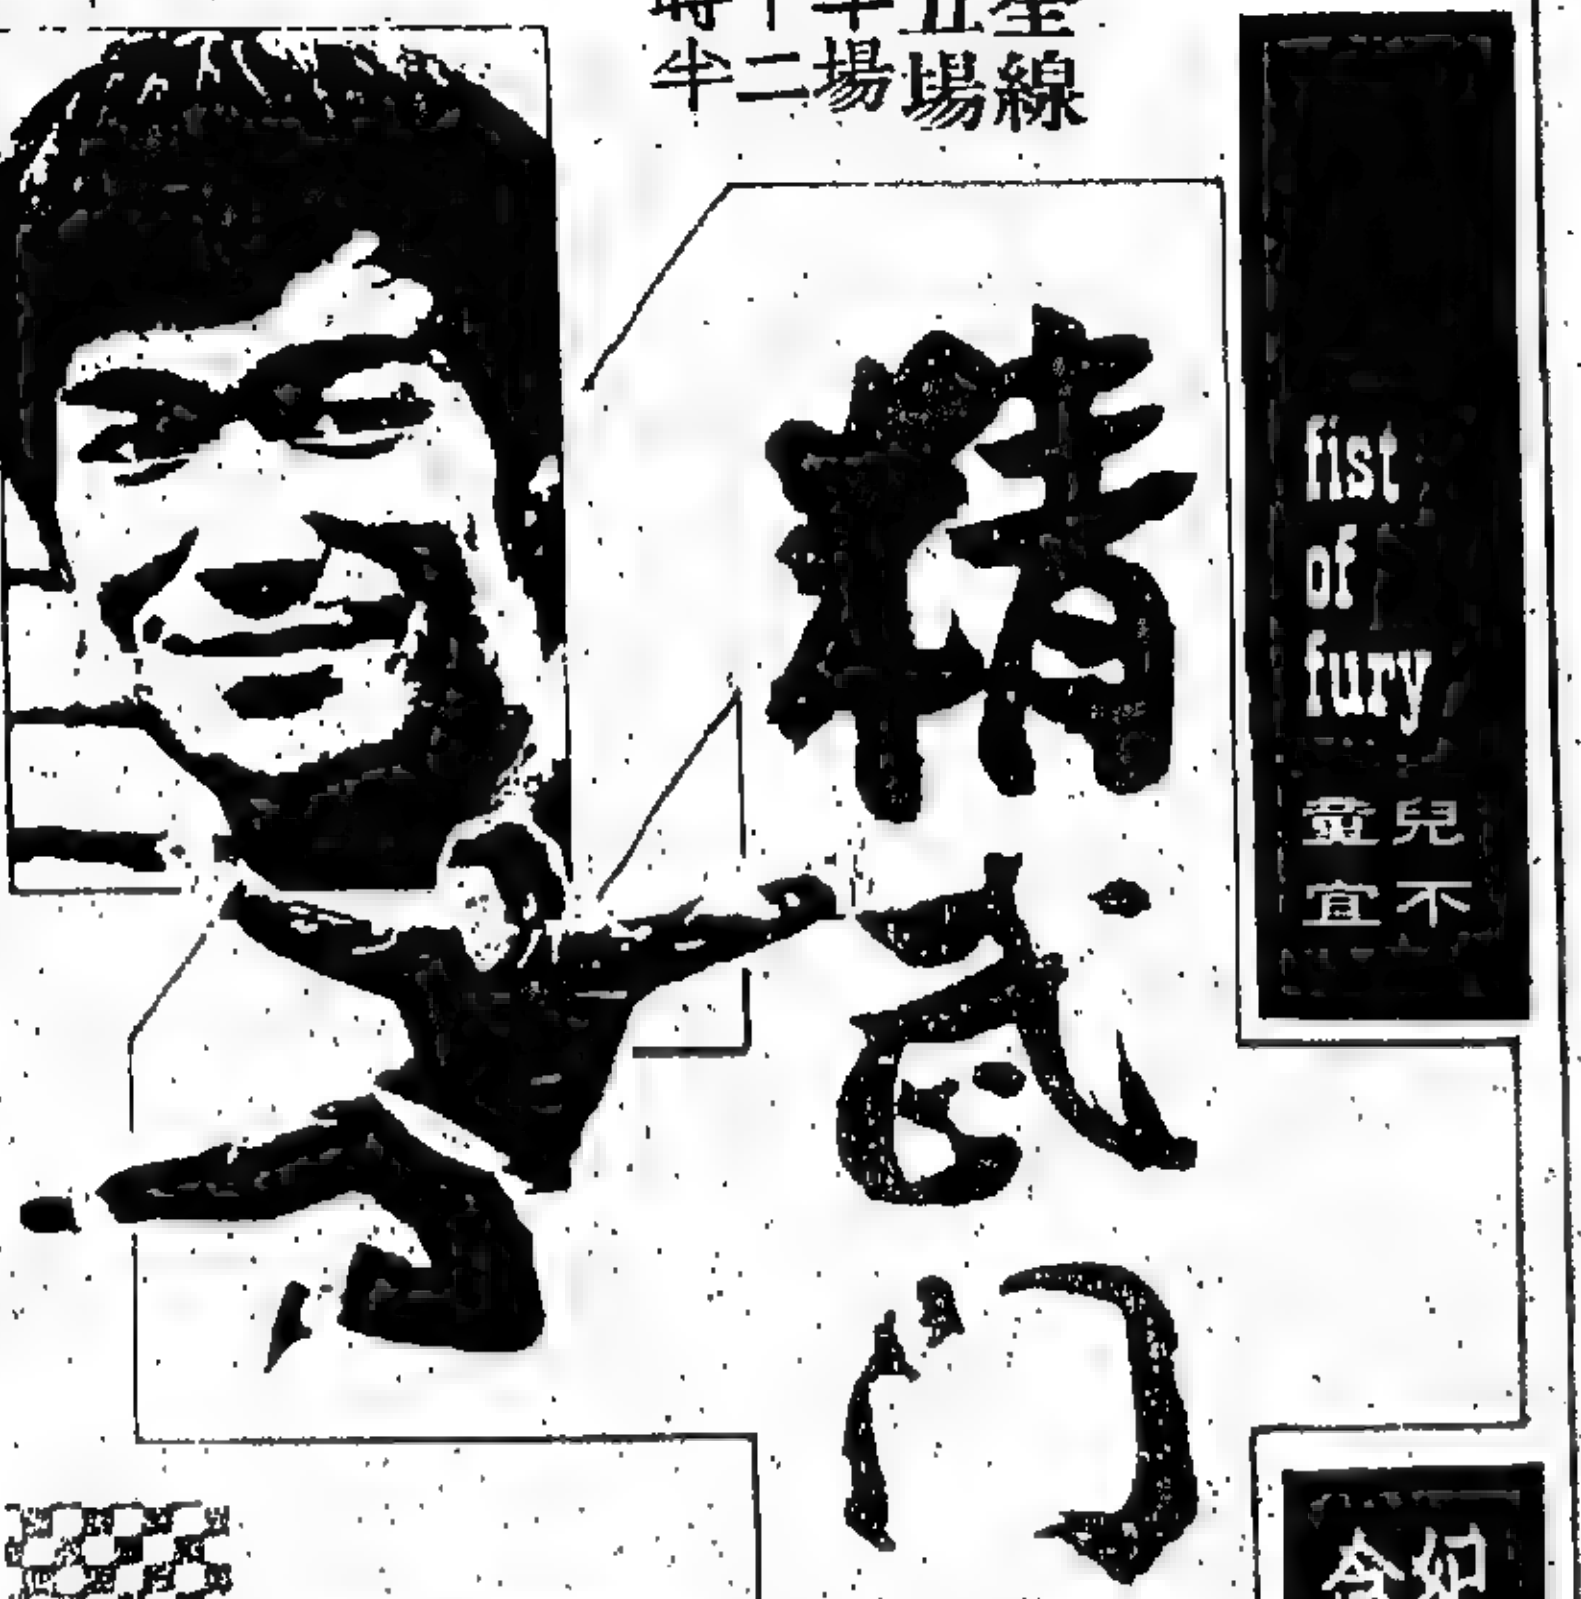 半二場場線
精武门
fist
of
fury
兒不
宜